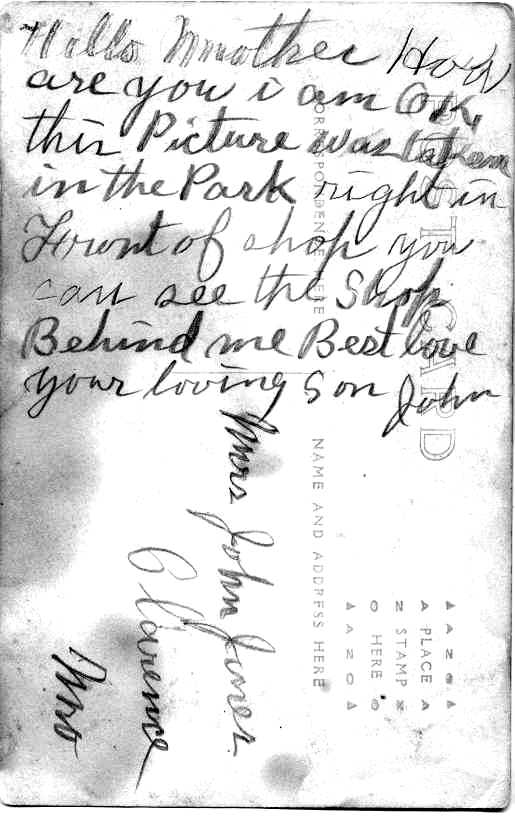 Hello Mmother How
are you i am O.K.
this Picture was taken
in the Park right in
Frount of shop you
can see the Shop
Behind me Best love
your loving Son John
Mrs John Jones
Clarence
Mo
POST CARD
CORRESPONDENCE HERE
NAME AND ADDRESS HERE
AZO
PLACE
STAMP
HERE
AZO